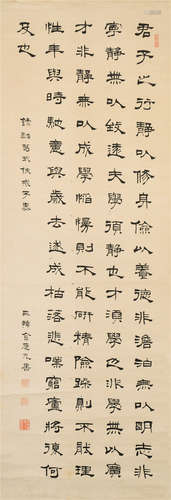 君子之行靜以修身儉以養德非澹泊無以明志非
寧靜無以致遠夫學須靜也才須學也非學無以廣
才非靜無以成學慆慢則不能研精險躁則不能理
性年與時馳意與歲去遂成枯落悲嘆窮廬將復何
及也
錄諸葛武侯戒子書